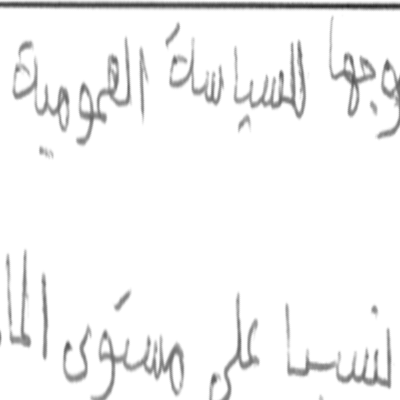 وجها للسياسة العمومية
نسبيا على مستوى الما